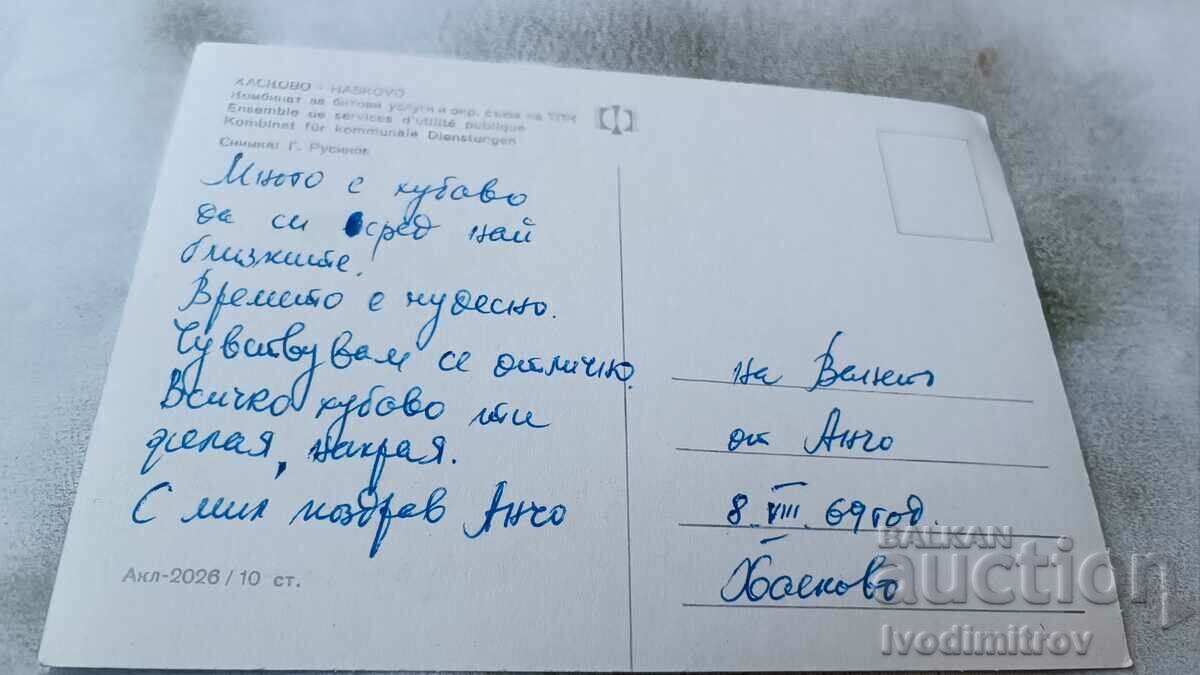 ХАСКОВО - HASKOVO
Комбинат за битови услуги и окр. съюз на ТПК
Ensemble de services d'utilité publique
Kombinet für kommunale Dienstungen
Снимка: Г. Русинов
Много е хубаво
да си сред най
близките.
Времето е чудесно.
Чувствувам се отлично.
Всичко хубаво ти
желая, накрая.
С мил поздрав Анчо
Акл-2026/10 ст.
на
от Анчо
8. VIII. 69 год.
Хасково
BALKAN
auction
Ivodimitrov